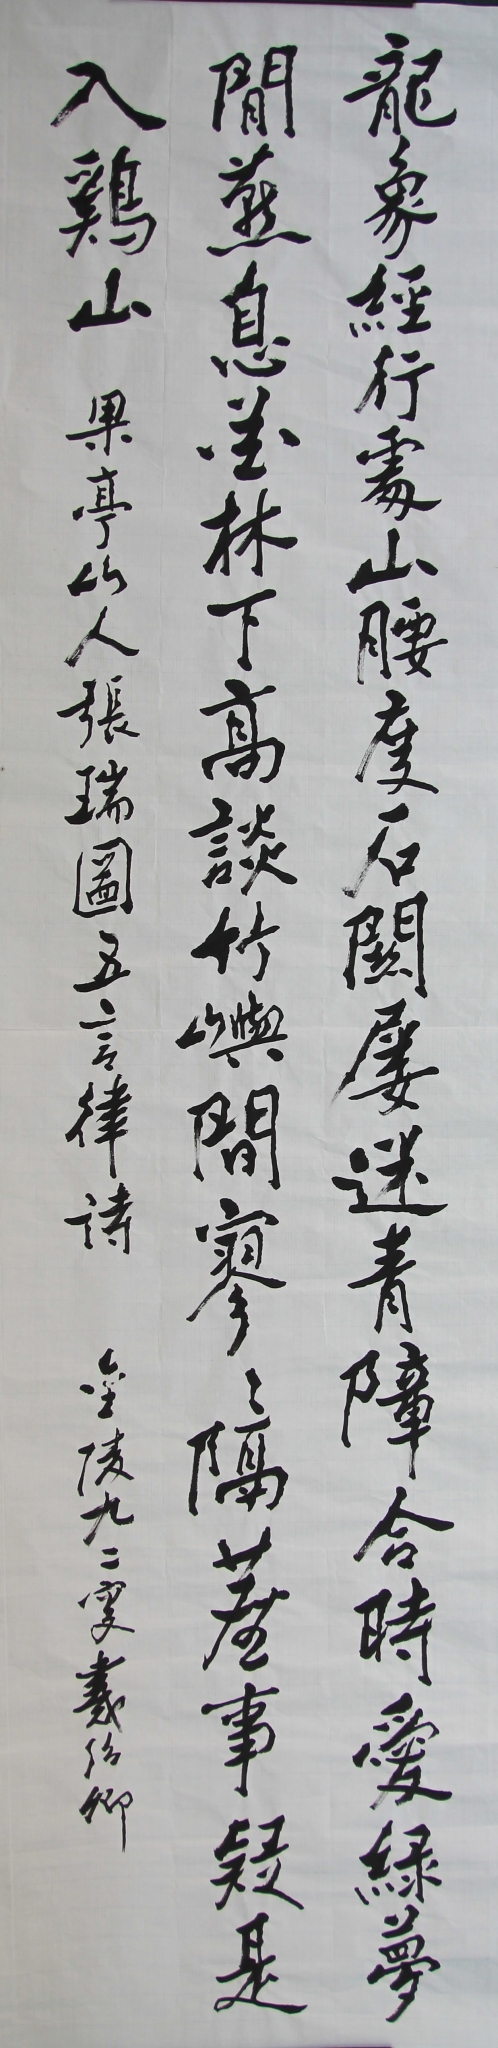 龍象經行處山腰度石關屢迷青障合時愛綠夢
閒燕息花林下高談竹嶼間寥〻隔塵事疑是
入鷄山 果亭山人張瑞圖五言律詩 金陵九二叟戴卿